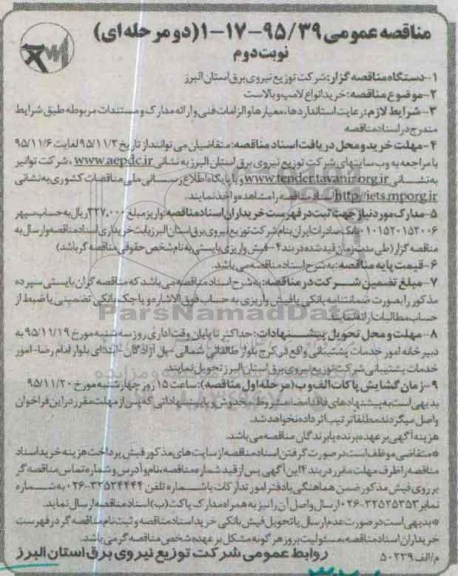 مناقصه عمومی ۹۵/۳۹-۱۷-۱(دو مرحله ای)
نوبت دوم
۱-دستگاه مناقصه گزار: شرکت توزیع نیروی برق استان البرز
۲-موضوع مناقصه: خرید انواع لامپ و بالاست
۳- شرایط لازم: رعایت استانداردها، معیارها و الزامات فنی و ارائه مدارک و مستندات مربوطه طبق شرایط
مندرج در اسناد مناقصه
۴- مهلت خرید و محل دریافت اسناد مناقصه: متقاضیان می توانند از تاریخ ۹۵/۱۱/۲ لغایت ۹۵/۱۱/۶
با مراجعه به وب سایتهای شرکت توزیع نیروی برق استان البرز به نشانی www.aepdc.ir ، شرکت توانیر
به نشانی www.tender.tavanir.org.ir و یا پایگاه اطلاع رسانی ملی مناقصات کشوری به نشانی
http://iets.mporg.ir اسناد مناقصه را مشاهده و اخذ نمایند.
۵-مدارک مورد نیاز جهت ثبت در فهرست خریداران اسناد مناقصه: واریز مبلغ ۳۲۷,۰۰۰ ریال به حساب سپهر
۰۱۰۱۵۲۰۱۵۲۰۰۶ بانک صادرات ایران بنام شرکت توزیع نیروی برق استان البرز بابت خریداری اسناد مناقصه و ارسال به
مناقصه گزار (طی مدت زمان قید شده در بند ۴-فیش واریزی بایستی به نام شخص حقوقی مناقصه گر باشد)
۶- قیمت پایه مناقصه: به شرح اسناد مناقصه می باشد.
۷- مبلغ تضمین شرکت در مناقصه: به شرح اسناد مناقصه می باشد که مناقصه گران بایستی سپرده
مذکور را بصورت ضمانتنامه بانکی یا فیش واریزی به حساب فوق الاشاره و یا چک بانکی تضمینی یا ضبط از
حساب مطالبات ارائه نمایند.
۸- مهلت و محل تحویل پیشنهادات: حداکثر تا پایان وقت اداری روز سه شنبه مورخ ۹۵/۱۱/۱۹ به
دبیرخانه امور خدمات پشتیبانی واقع در کرج بلوار طالقانی شمالی -پل آزادگان -ابتدای بلوار امام رضا- امور
خدمات پشتیبانی شرکت توزیع نیروی برق استان البرز تحویل نمایند
۹- زمان گشایش پاکات الف و ب (مرحله اول مناقصه): ساعت ۱۵ روز چهارشنبه مورخ ۹۵/۱۱/۲۰
بدیهی است به پیشنهادهای فاقد امضا، مشروط، مخدوش و پیشنهاداتی که پس از مهلت مقرر در این فراخوان
واصل میگردند مطلقا ترتیب اثر داده نخواهد شد.
هزینه آگهی بر عهده برنده یا برندگان مناقصه می باشد.
*متقاضی موظف است در صورت گرفتن اسناد مناقصه از سایت های مذکور فیش پرداخت هزینه خرید اسناد
مناقصه را ظرف مهلت مقرر در بند ۴ این آگهی پس از قید شماره مناقصه، نام و آدرس و شماره تماس مناقصه گر
بر روی فیش مذکور ضمن هماهنگی با دفتر امور تدارکات با شماره تلفن ۳۲۵۲۴۴۴۴-۰۲۶ به شماره
نمابر ۳۲۵۲۵۳۵۳-۰۲۶ ارسال و اصل آن را نیز به همراه مدارک پاکت (ب) اسناد مناقصه ارسال نماید.
*بدیهی است در صورت عدم ارسال یا تحویل فیش بانکی خرید اسناد مناقصه و ثبت نام مناقصه گر در فهرست
خریداران اسناد مناقصه، مسئولیت بروز هر گونه مشکل بر عهده شخص مناقصه گر می باشد.
م/الف ۵۰۲۳۹ روابط عمومی شرکت توزیع نیروی برق استان البرز